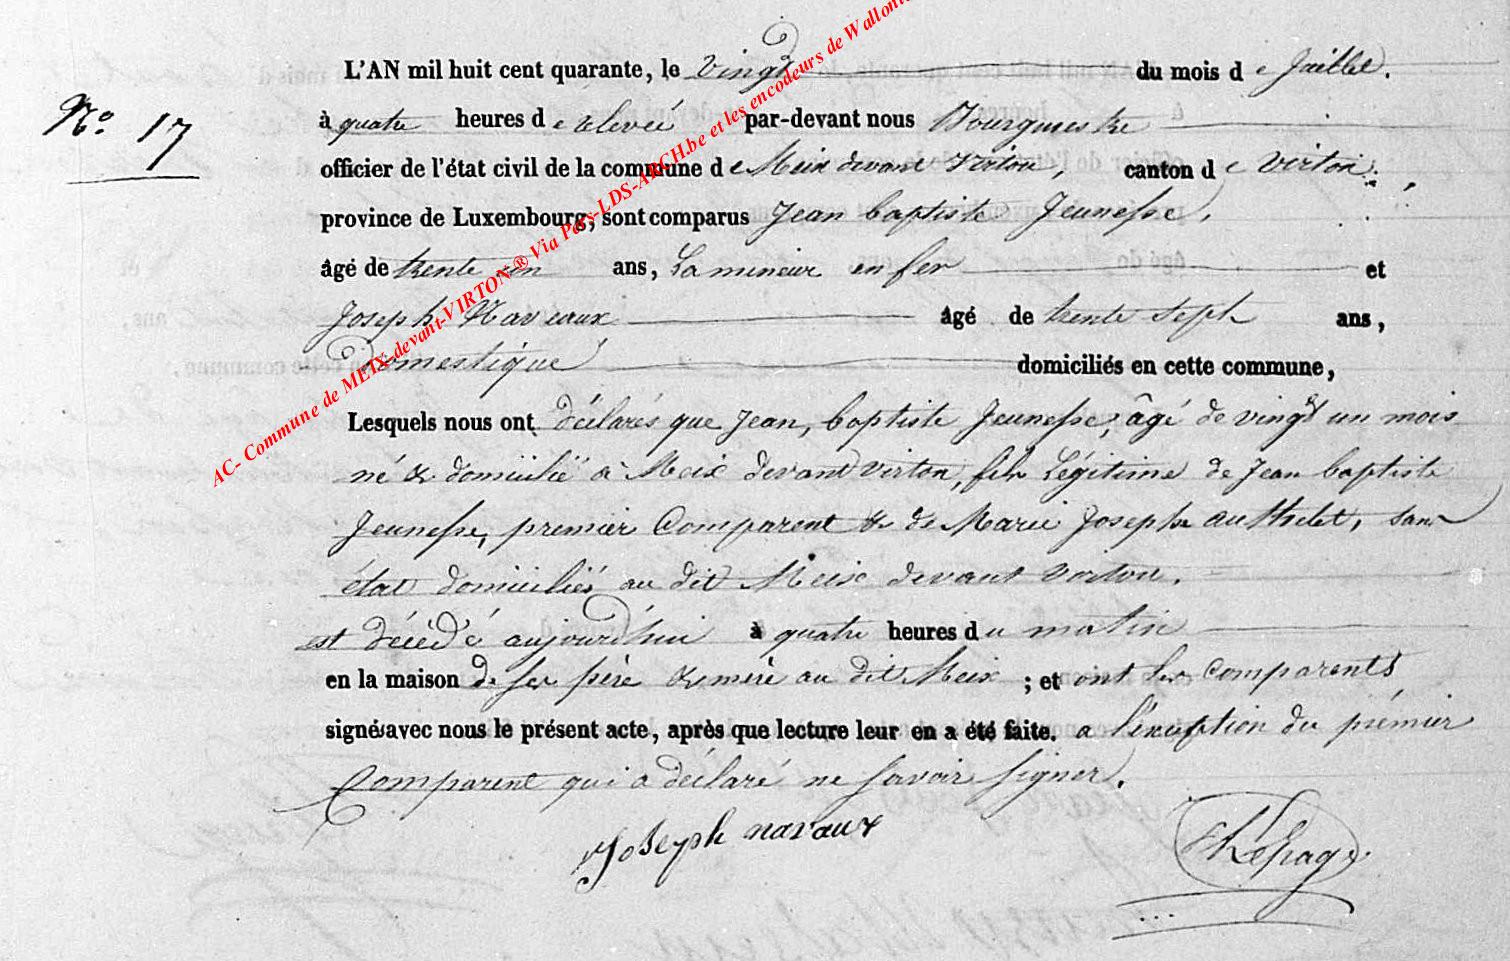 L'AN mil huit cent quarante, le vingt du mois de Juillet.
N.o 17
à quatre heures de relevée par-devant nous Bourgmestre
officier de l'état civil de la commune de Meix devant Virton, canton de Virton,
province de Luxembourg, sont comparus Jean baptiste Jeunesse,
âgé de trente un ans, Lamineur en fer et
Joseph Naveaux âgé de trente sept ans,
Domestique domiciliés en cette commune,
Lesquels nous ont déclarés que Jean, baptiste Jeunesse, âgé de vingt un mois
né & domicilié à Meix devant virton, fils Légitime de Jean baptiste
Jeunesse, premier Comparent & de Marie Joseph authelet, sans
état domiciliés au dit Meix devant Virton.
est décédé aujourd'hui à quatre heures du matin
en la maison de ses père & mère au dit Meix ; et ont les comparents
signés avec nous le présent acte, après que lecture leur en a été faite. a l'exception du prémier
Comparent qui a déclaré ne savoir signer.
Joseph navaux
Lepage
AC- Commune de MEIX-devant-VIRTON® Via Pays-LDS-ARCH.be et les encodeurs de Walloni